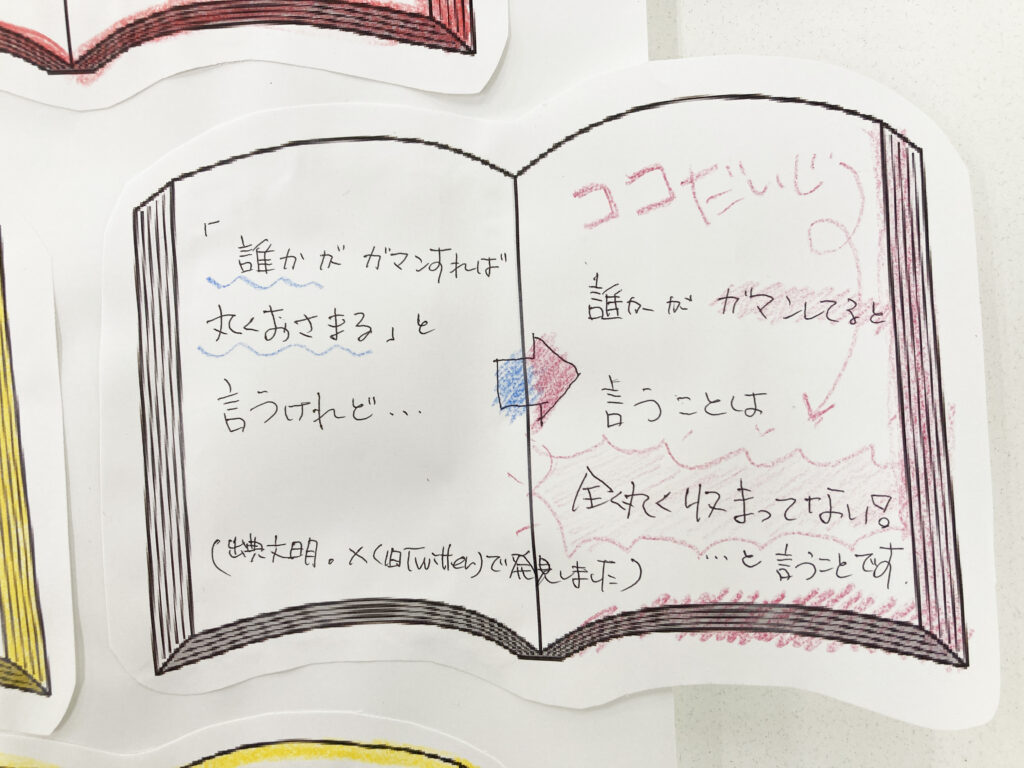 「誰かがガマンすれば
丸くおさまる」と
言うけれど…
(出典文明。X(旧Twitter)で発見しました)
ココだいじ
誰かがガマンしてると
言うことは
全く丸く収まってない!
…と言うことです.